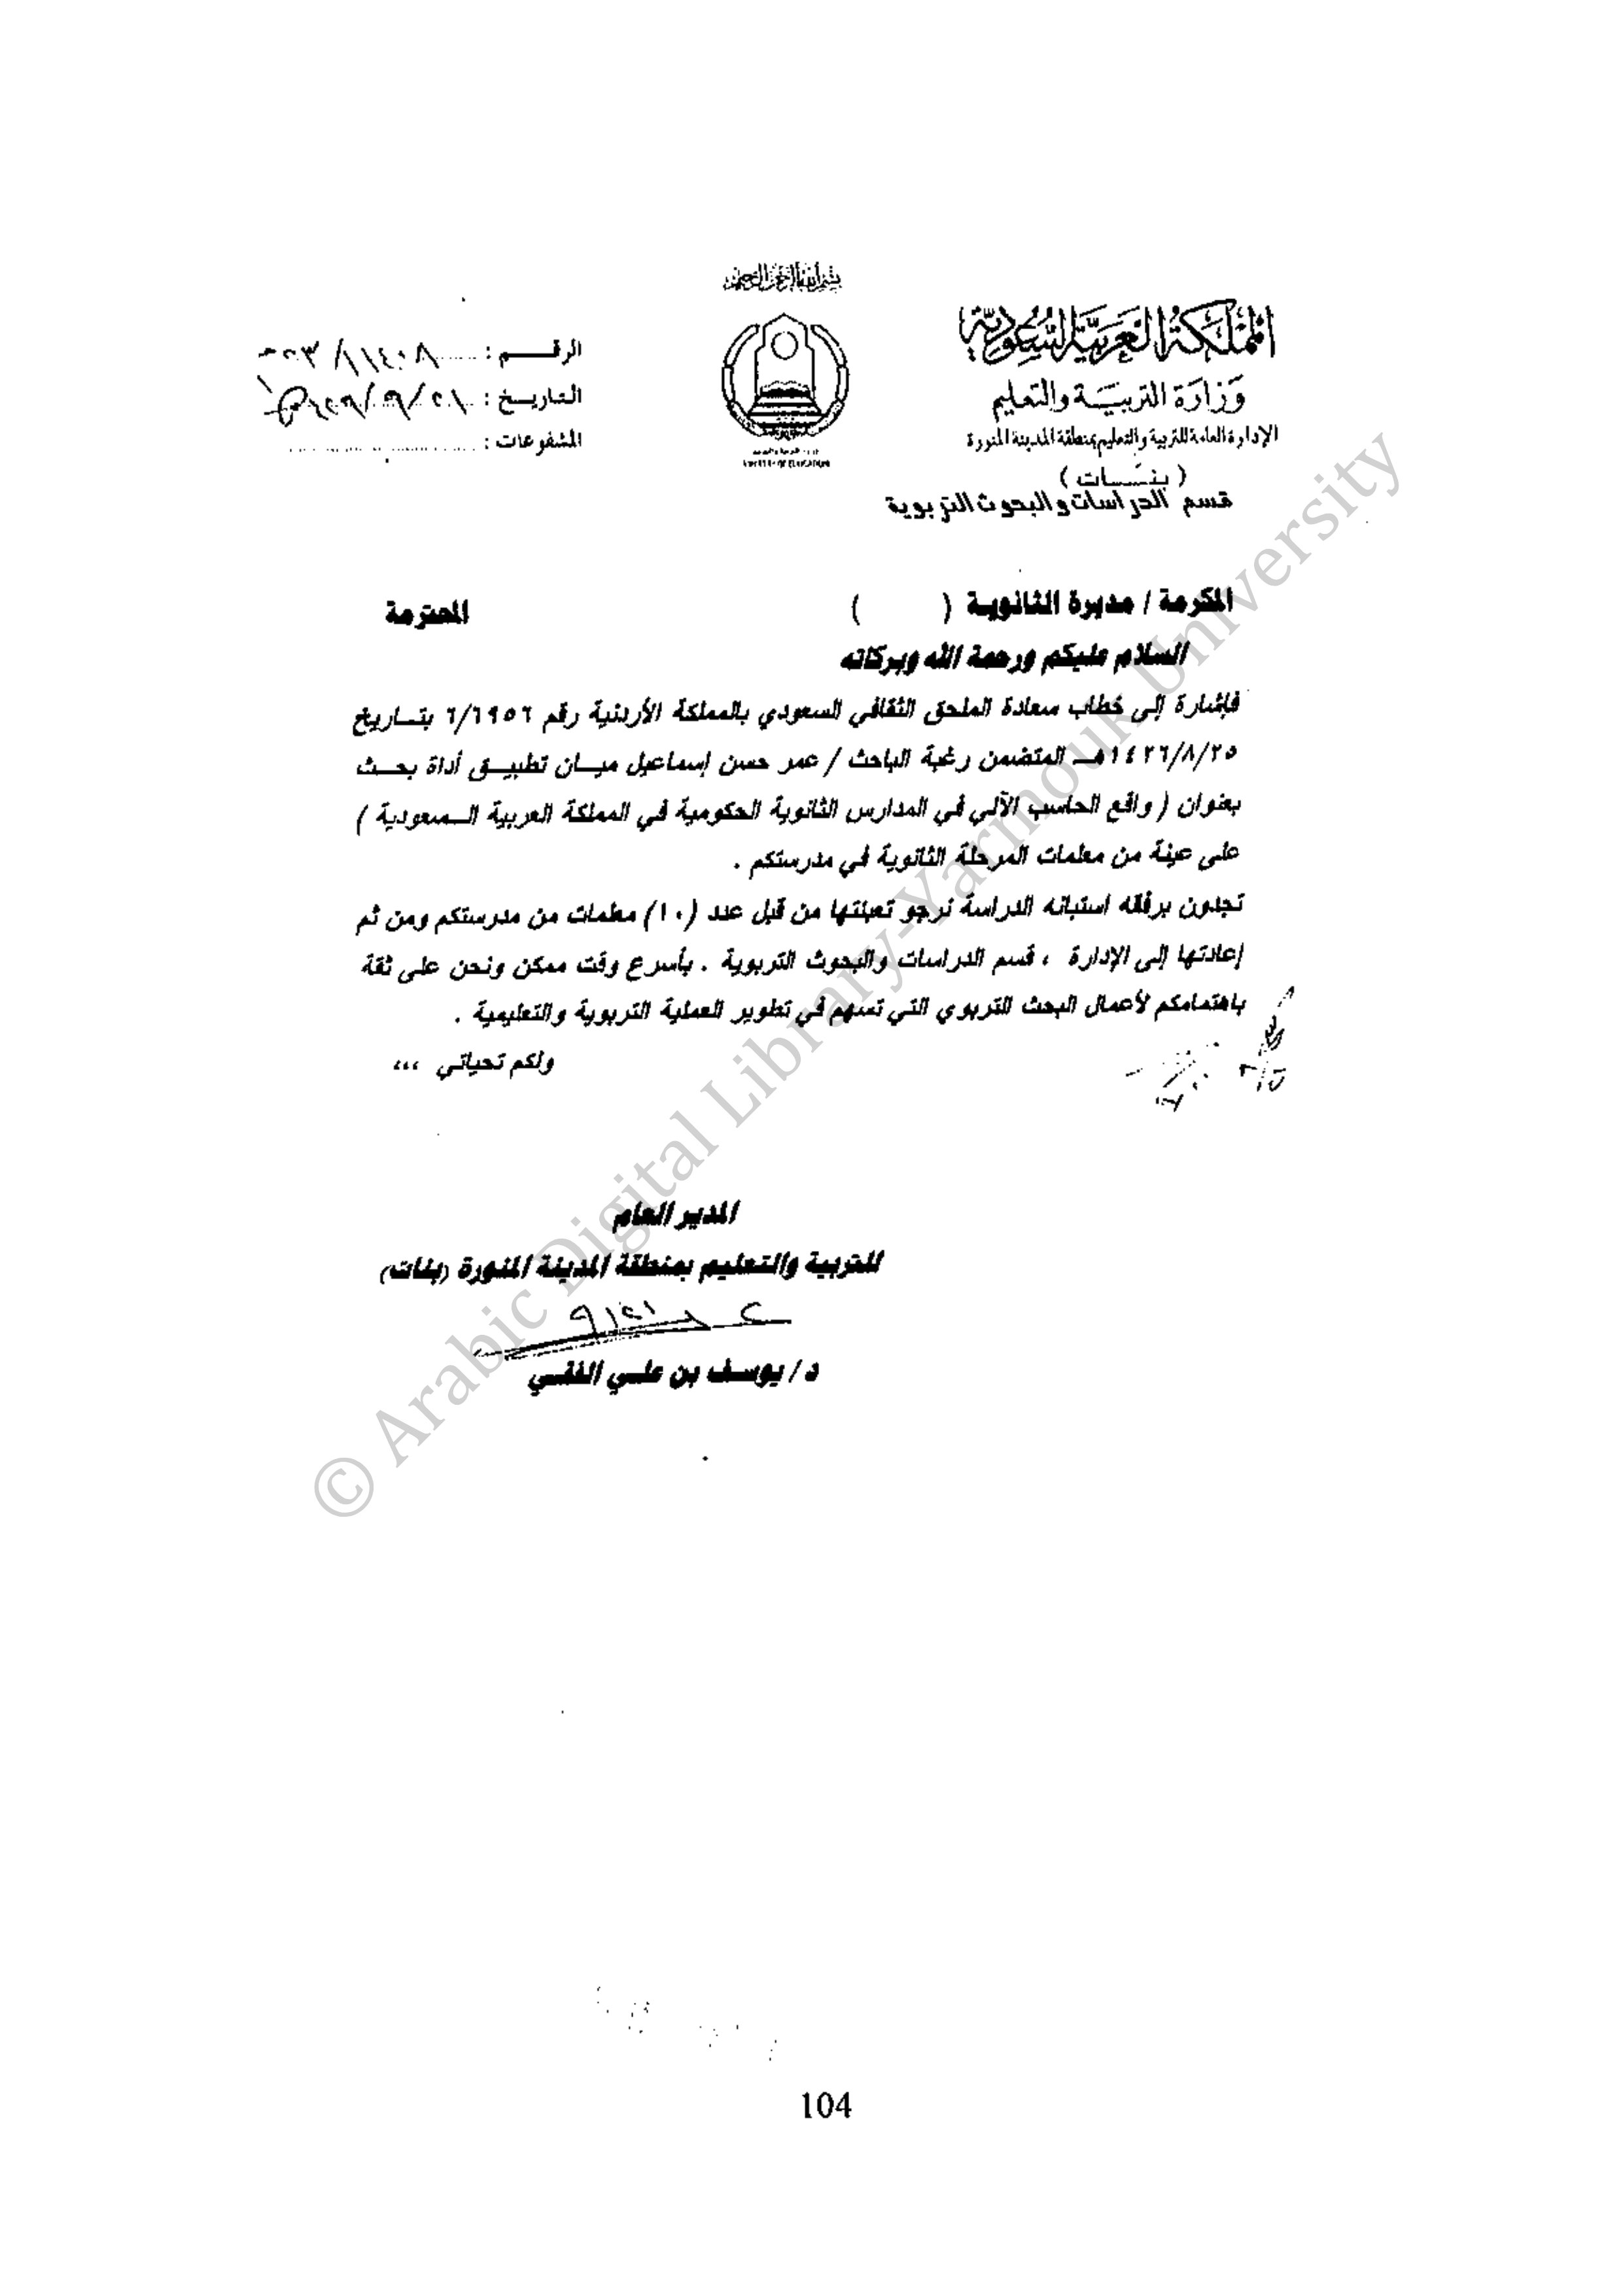 بسم الله الرحمن الرحيم
المملكة العربية السعودية
وزارة التربية والتعليم
الإدارة العامة للتربية والتعليم بمنطقة المدينة المنورة
( بنات )
قسم الدراسات والبحوث التربوية
الرقم :
التاريخ :
المشفوعات :
MINISTRY OF EDUCATION
المكرمة / مديرة الثانوية ( ) المحترمة
السلام عليكم ورحمة الله وبركاته
فإشارة إلى خطاب سعادة الملحق الثقافي السعودي بالمملكة الأردنية رقم ٦/٦٩٥٦ بتاريخ
١٤٢٦/٨/٢٥هـ المتضمن رغبة الباحث / عمر حسن إسماعيل ميان تطبيق أداة بحث
بعنوان ( واقع الحاسب الآلي في المدارس الثانوية الحكومية في المملكة العربية السعودية )
على عينة من معلمات المرحلة الثانوية في مدرستكم .
تجدون برفقه استبانه الدراسة نرجو تعبئتها من قبل عدد (١٠) معلمات من مدرستكم ومن ثم
إعادتها إلى الإدارة ، قسم الدراسات والبحوث التربوية . بأسرع وقت ممكن ونحن على ثقة
باهتمامكم لأعمال البحث التربوي التي تسهم في تطوير العملية التربوية والتعليمية .
ولكم تحياتي ،،،
المدير العام
للتربية والتعليم بمنطقة المدينة المنورة (بنات)
٩/٢١
د / يوسف بن علي الفقي
© Arabic Digital Library-Yarmouk University
104